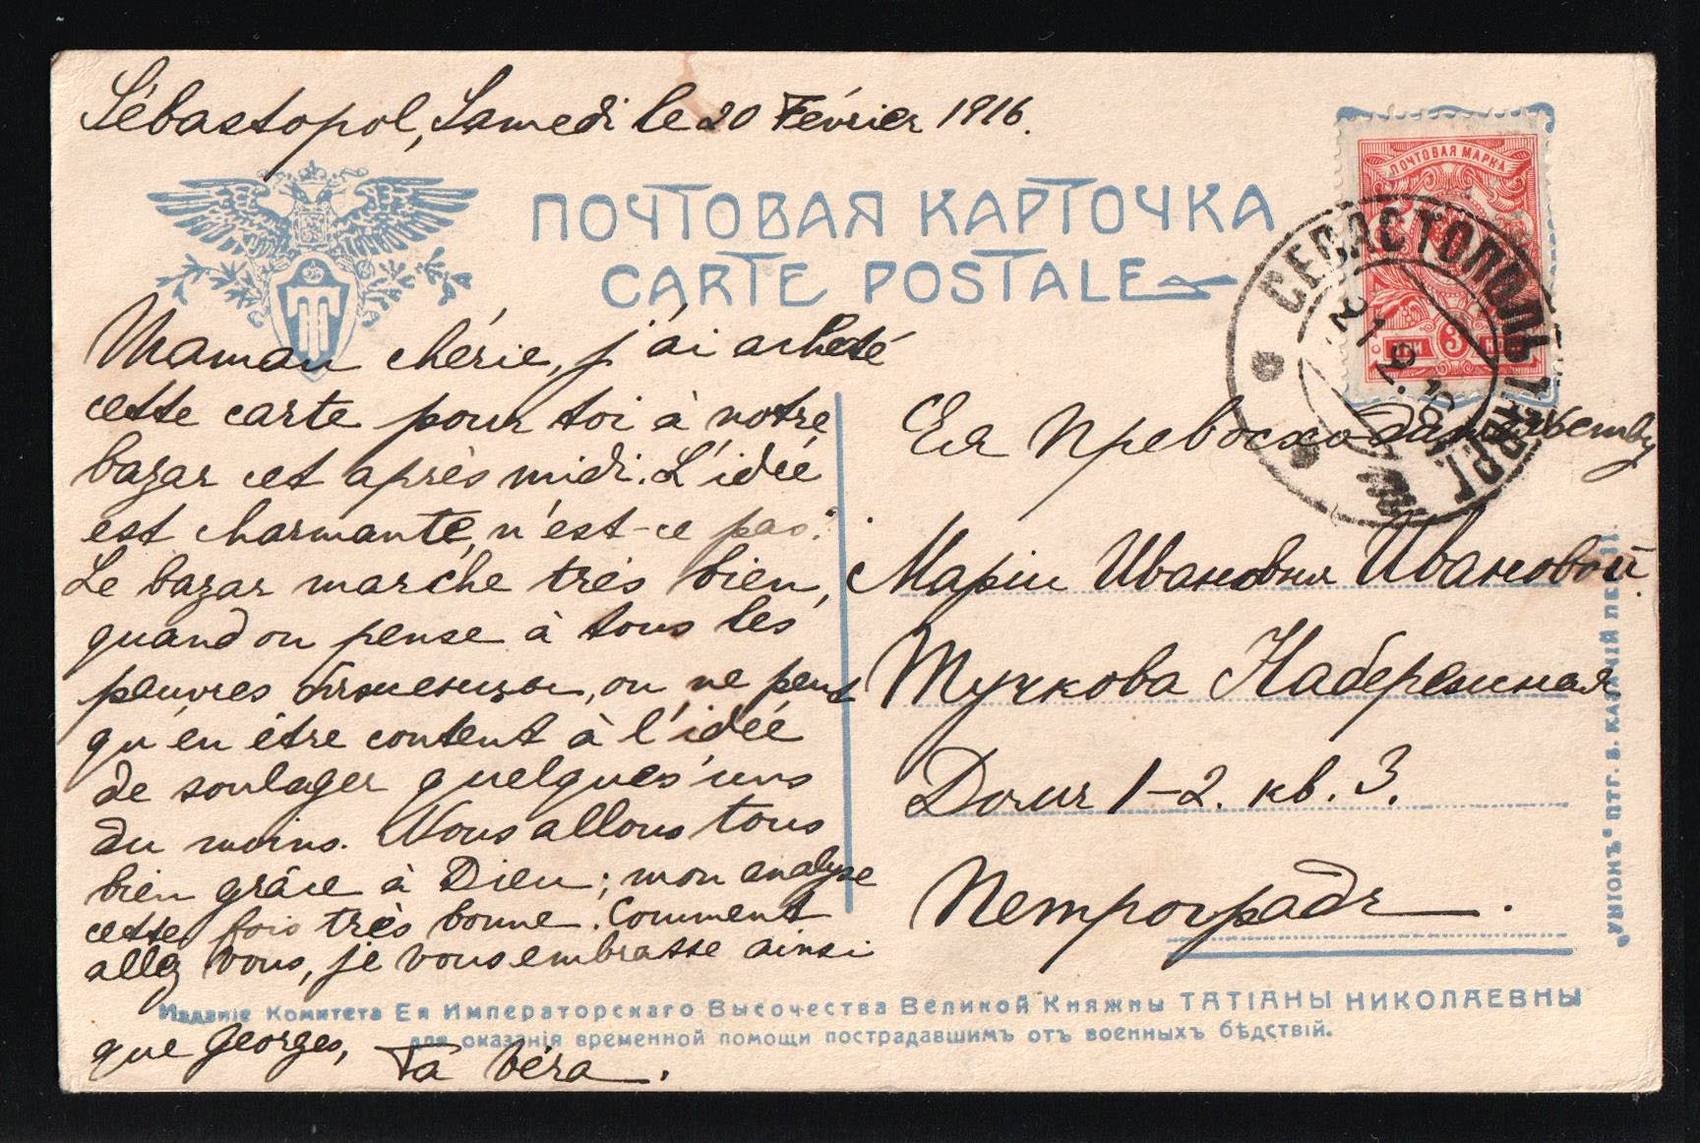 Sébastopol, Samedi le 20 Février 1916.
ПОЧТОВАЯ КАРТОЧКА
CARTE POSTALE
ПОЧТОВАЯ МАРКА
ТРИ 3 КОП
СЕВАСТОПОЛЬ ТАВР.Г.
21.2.16
Maman chérie, j'ai acheté
cette carte pour toi à notre
bazar cet après midi. L'idée
est charmante, n'est-ce pas?
Le bazar marche très bien,
quand on pense à tous les
peuvres бѣженцы, on ne peut
qu'en être content à l'idée
de soulager quelques'uns
du moins. Nous allons tous
bien grâce à Dieu; mon analyse
cette fois très bonne. Comment
allez vous, je vous embrasse ainsi
que Georges, Ta Véra.
Ея Превосходительству
Маріи Ивановня Ивановой.
Тучкова Набережная
Домъ 1-2. кв. 3.
Петроградъ.
Изданіе Комитета Ея Императорскаго Высочества Великой Княжны ТАТІАНЫ НИКОЛАЕВНЫ
для оказанія временной помощи пострадавшимъ отъ военныхъ бѣдствій.
„УНІОНЪ" ПТГ. Б. КАЗАЧІЙ ПЕР. 11.